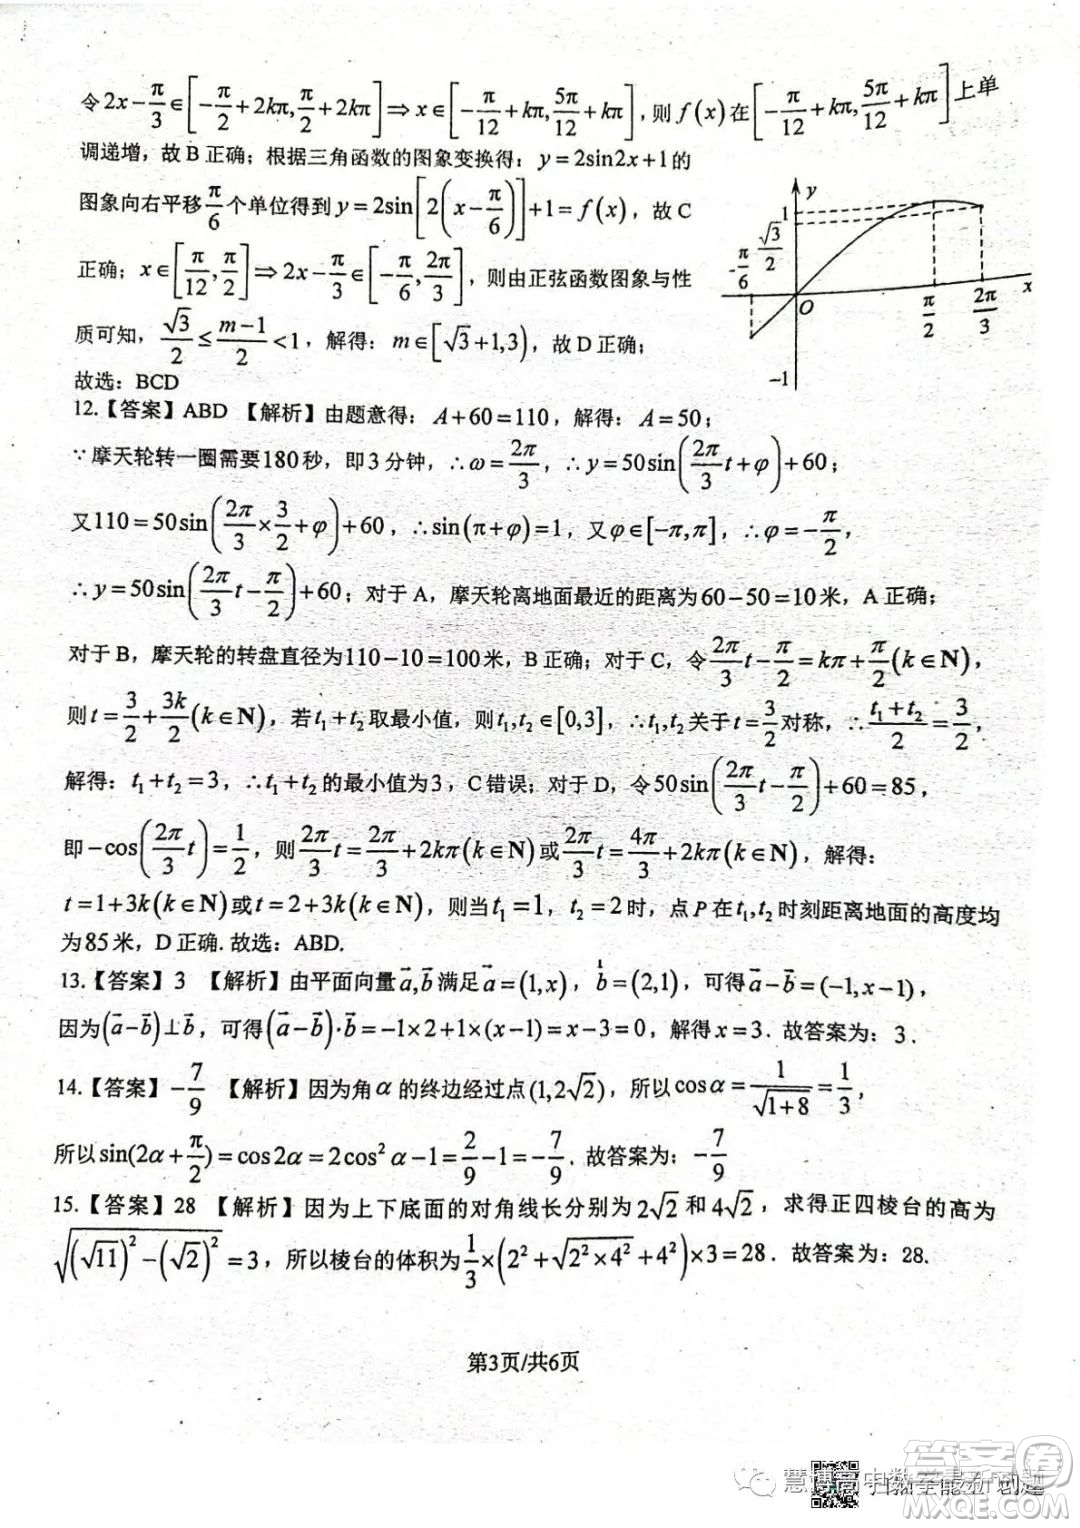 令2x−π/3∈[−π/2+2kπ,π/2+2kπ]⇒x∈[−π/12+kπ,5π/12+kπ],则f(x)在[−π/12+kπ,5π/12+kπ]上单
调递增，故B正确；根据三角函数的图象变换得：y=2sin2x+1的
图象向右平移π/6个单位得到y=2sin[2(x−π/6)]+1=f(x)，故C
正确；x∈[π/12,π/2]⇒2x−π/3∈[−π/6,2π/3]，则由正弦函数图象与性
质可知，√3/2≤(m−1)/2<1，解得：m∈[√3+1,3)，故D正确；
故选：BCD
y
1
√3/2
-π/6
O
π/2
2π/3
x
−1
12.【答案】ABD 【解析】由题意得：A+60=110，解得：A=50；
∵摩天轮转一圈需要180秒，即3分钟，∴ω=2π/3，∴y=50sin(2π/3 t+φ)+60；
又110=50sin(2π/3×3/2+φ)+60，∴sin(π+φ)=1，又φ∈[−π,π]，∴φ=−π/2，
∴y=50sin(2π/3 t−π/2)+60；对于A，摩天轮离地面最近的距离为60−50=10米，A正确；
对于B，摩天轮的转盘直径为110−10=100米，B正确；对于C，令2π/3 t−π/2=kπ+π/2(k∈N)，
则t=3/2+3k/2(k∈N)，若t₁+t₂取最小值，则t₁,t₂∈[0,3]，∴t₁,t₂关于t=3/2对称，∴(t₁+t₂)/2=3/2，
解得：t₁+t₂=3，∴t₁+t₂的最小值为3，C错误；对于D，令50sin(2π/3 t−π/2)+60=85，
即−cos(2π/3 t)=1/2，则2π/3 t=2π/3+2kπ(k∈N)或2π/3 t=4π/3+2kπ(k∈N)，解得：
t=1+3k(k∈N)或t=2+3k(k∈N)，则当t₁=1，t₂=2时，点P在t₁,t₂时刻距离地面的高度均
为85米，D正确.故选：ABD.
13.【答案】3 【解析】由平面向量a⃗,b⃗满足a⃗=(1,x)，b⃗=(2,1)，可得a⃗−b⃗=(−1,x−1)，
因为(a⃗−b⃗)⊥b⃗，可得(a⃗−b⃗)·b⃗=−1×2+1×(x−1)=x−3=0，解得x=3．故答案为：3．
14.【答案】−7/9 【解析】因为角α的终边经过点(1,2√2)，所以cosα=1/√(1+8)=1/3，
所以sin(2α+π/2)=cos2α=2cos²α−1=2/9−1=−7/9．故答案为：−7/9
15.【答案】28 【解析】因为上下底面的对角线长分别为2√2和4√2，求得正四棱台的高为
√((√11)²−(√2)²)=3，所以棱台的体积为1/3×(2²+√(2²×4²)+4²)×3=28．故答案为：28.
第3页/共6页
慧博高中数学最新
答案圈
MXQE.COM